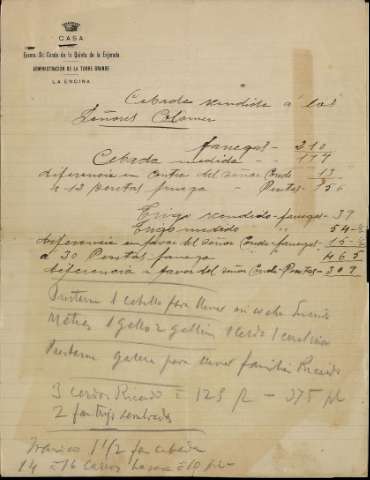 CASA
Excmo. Sr. Conde de la Quinta de la Enjarada
ADMINISTRACIÓN DE LA TORRE GRANDE
LA ENCINA
Cebada vendida á los
Señores Colomer
fanegas - 210
Cebada medida " - 197
diferencia en contra del señor Conde - 13
á 12 Pesetas fanega - Pesetas - 156
Trigo vendido - fanegas - 39
Trigo medido " - 54-½
diferencia en favor del señor Conde - fanegas - 15-½
á 30 Pesetas fanega 465
diferencia a favor del señor Conde - Pesetas - 309
1 caballo para llevar mi coche
1 gallo 2 gallinas 1 cerdo 1
galera para llevar familia Ricardo
3 cerdos Ricardo = 125 p - 375 pts
2 fan trigo
1 1/2 fan cebada
14 = 16